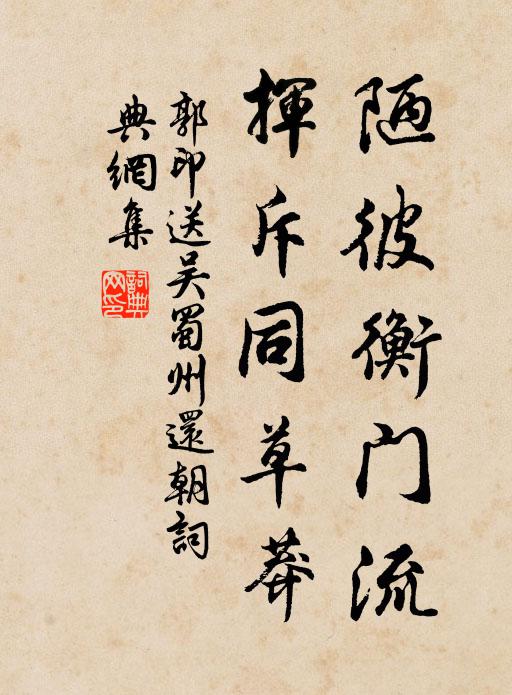 陋彼衡門流
揮斥同草莽
郭印送吴蜀州還朝詞
典網集
詞典网印